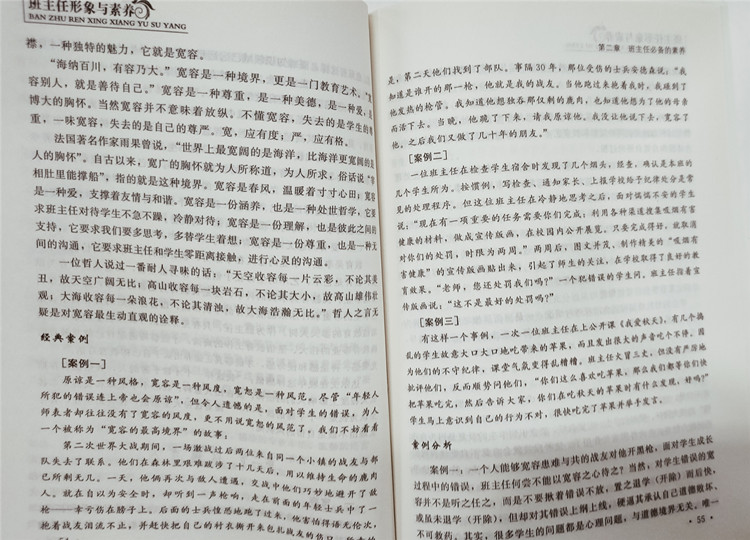 班主任形象与素养
BAN ZHU REN XING XIANG YU SU YANG
襟，一种独特的魅力，它就是宽容。
“海纳百川，有容乃大。”宽容是一种境界，更是一门教育艺术。“宽
容别人，就是善待自己。”宽容是一种尊重，是一种美德，是一种爱，是
博大的胸怀。当然宽容并不意味着放纵。不懂宽容，失去的是学生的尊
重，一味宽容，失去的是自己的尊严。宽，应有度；严，应有格。
法国著名作家雨果曾说，“世界上最宽阔的是海洋，比海洋更宽阔的是
人的胸怀”。自古以来，宽广的胸怀就为人所称道，为人所求，俗话说“宰
相肚里能撑船”，指的就是这种境界。宽容是春风，温暖着寸寸心田；宽容
是一种爱，支撑着友情与和谐。宽容是一份涵养，也是一种处世哲学，它要
求班主任对待学生不急不躁，冷静对待；宽容是一份理解，也是彼此之间的
支持，它要求我们要多思考，多替学生着想；宽容是一份尊重，也是一种无
间的沟通，它要求班主任和学生零距离接触，进行心灵的沟通。
一位哲人说过一番耐人寻味的话：“天空收容每一片云彩，不论其美
丑，故天空广阔无比；高山收容每一块岩石，不论其大小，故高山雄伟壮
观；大海收容每一朵浪花，不论其清浊，故大海浩瀚无比。”哲人之言无
疑是对宽容最生动直观的诠释。
经典案例
[案例一]
原谅是一种风格，宽容是一种风度，宽恕是一种风范。尽管“年轻人
所犯的错误连上帝也会原谅”，但令人遗憾的是，面对学生的错误，为人
师表者却往往没有了宽容的风度，更不用说宽恕的风范了。我们不妨看看
一个被称为“宽容的最高境界”的故事：
第二次世界大战期间，一场激战过后两位来自同一个小镇的战友与部
队失去了联系。他们在森林里艰难跋涉了十几天后，用以维持生命的鹿肉
已所剩无几。一天，他俩再次与敌人遭遇，交战中他们巧妙地避开了敌
人。就在自以为安全时，却听到一声枪响，走在前面的年轻士兵中了一
枪——幸亏伤在膀子上。后面的士兵惶恐地跑了过来，他害怕得语无伦次，
抱着战友泪流不止，并赶快把自己的衬衣撕开来包扎战友的伤口
第二章 班主任必备的素养
是，第二天他们找到了部队。事隔30年，那位受伤的士兵安德森说：“我
知道是谁开的那一枪，他就是我的战友。当他跑过来抱着我时，我碰到了
他发热的枪管。我知道他想独吞那仅剩的鹿肉，也知道他想为了他的母亲
而活下去。当晚，他跪了下来，请我原谅他。我没让他说下去，宽容了
他。之后我们又做了几十年的朋友。”
[案例二]
一位班主任在检查学生宿舍时发现了几个烟头，经查，确认是本班的
几个学生所为。按惯例，写检查、通知家长、上报学校给予纪律处分是常
见的处理程序。但这位班主任在冷静地思考之后，面对惴惴不安的学生
说：“现在有一项重要的任务需要你们完成：利用各种渠道搜集吸烟有害
健康的材料，做成宣传版画，在校园内公开展览。只要完成得好，就取消
对你们的处罚，时限为两周。”两周后，图文并茂、制作精美的“吸烟有
害健康”的宣传版画贴出来，引起了师生的关注，在学校取得了良好的教
育效果。“老师，您还处罚我们吗？”一个犯错误的学生问，班主任指着宣
传版画说：“这不是最好的处罚吗？”
[案例三]
有这样一个事例，一次一位班主任在上公开课《我爱秋天》，有几个搞
乱的学生故意大口大口地吃带来的苹果，而且发出很大的声音吃个不停。因
为他们的不守纪律，课堂气氛变得乱糟糟。班主任火冒三丈，但没有严厉地
批评他们，反而顺势问他们，“你们这么喜欢吃苹果，那么我们都等你们快
把苹果吃完，然后告诉大家，你们在吃秋天的苹果时有什么发现，好吗？”
学生马上意识到自己的行为不对，很快吃完了苹果并举手发言。
案例分析
案例一：一个人能够宽容患难与共的战友对他开黑枪，面对学生成长
过程中的错误，班主任何尝不能以宽容之心待之？当然，对学生错误的宽
容并不是听之任之，而是不要揪着错误不放，置之退学（开除）而后快，
或虽未退学（开除），但却对其错误上纲上线，硬逼其承认自己道德败坏、
不可救药。其实，很多学生的问题都是心理问题，与道德境界无关，唯一
· 55 ·